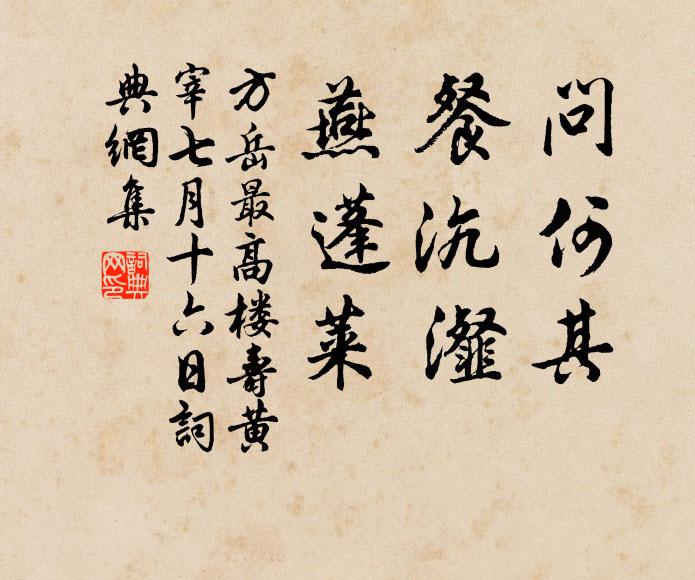 問何其
餐沆瀣
燕蓬萊
方岳最高楼壽黄
宰七月十六日詞
典網集
詞典
网印